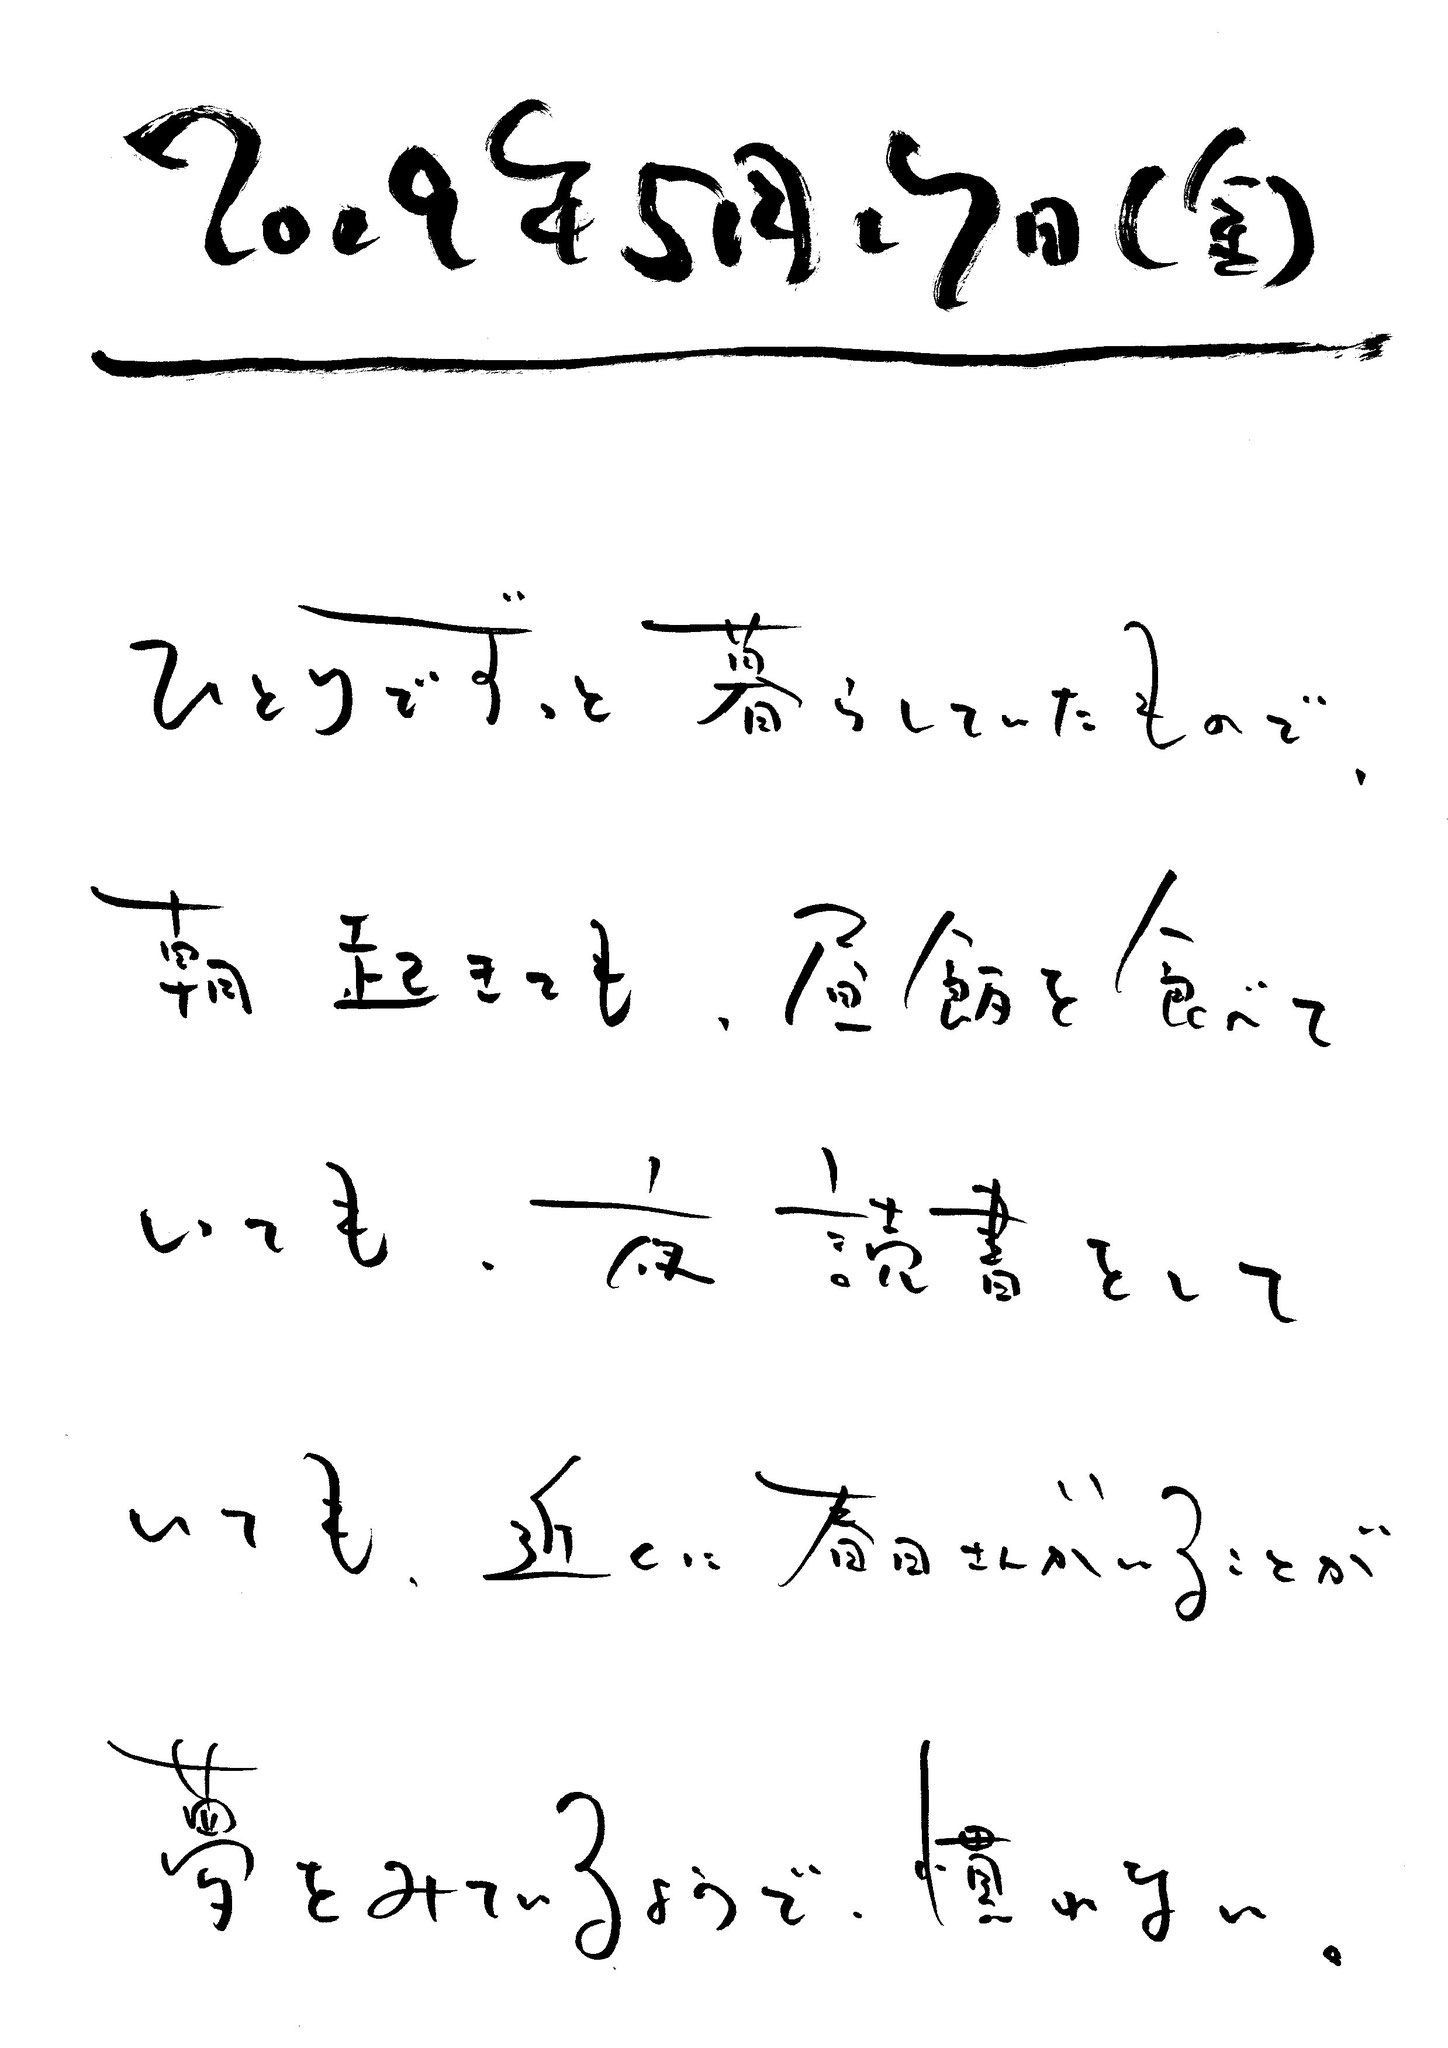 2019年5月17日(金)
ひとりでずっと暮らしていたもので、
朝起きても、昼飯を食べて
いても、夜読書をして
いても、近くに春日さんがいることが
夢をみているようで、慣れない。